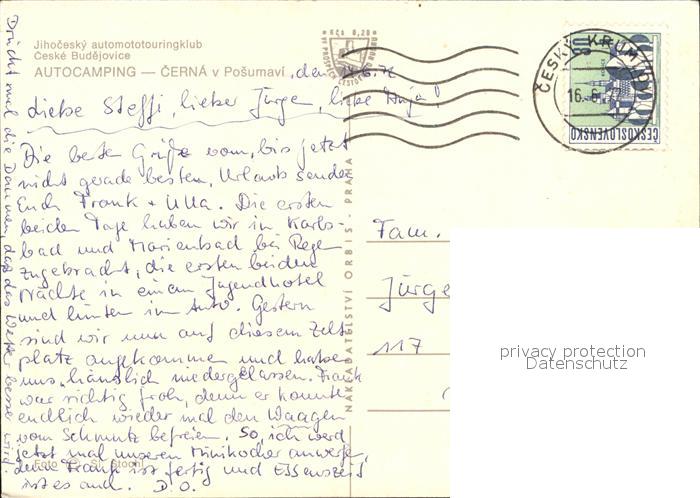 Jihočeský automototouringklub
České Budějovice
AUTOCAMPING — ČERNÁ v Pošumaví
, den 14.6.72
Liebe Steffi, lieber Jürgen, liebe Anja!
Die besten Grüße vom, bis jetzt
nicht gerade besten, Urlaub sendet
Euch Frank + Ulla. Die ersten
beiden Tage haben wir in Karls-
bad und Marienbad bei Regen
zugebracht, die ersten beiden
Nächte in einem Jugendhotel
und hinten im Auto. Gestern
sind wir nun auf diesem Zelt-
platz angekommen und haben
uns häuslich niedergelassen. Frank
war richtig froh, denn er konnte
endlich wieder mal den Waagen
vom Schmutz befreien. So, ich werd
jetzt mal unseren Minikocher anwerfen,
denn Frank ist fertig und Essenszeit
ist es auch. D.O.
Drückt mal die Daumen, daß das Wetter besser wird.
Foto St. Stochl
NAKLADATELSTVÍ ORBIS - PRAHA
Kčs 0,20
ČESKÝ KRUMLOV
16.6.
ČESKOSLOVENSKO
Fam.
Jürge
117
privacy protection
Datenschutz